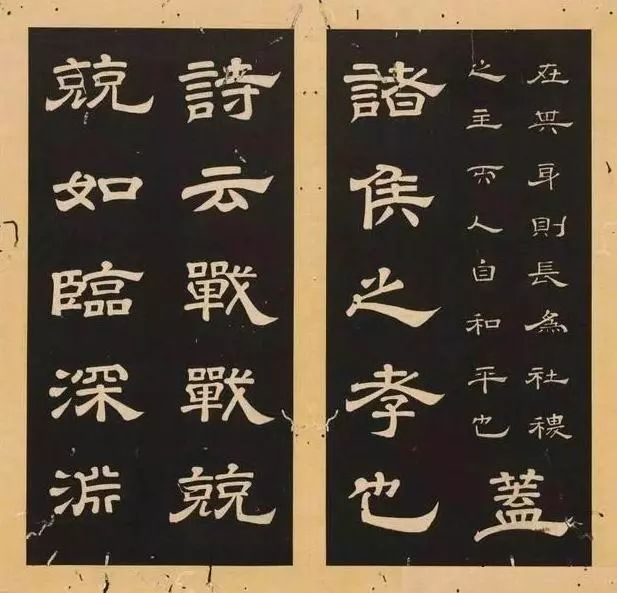 在其身則長為社稷
之主而人自和平也
蓋
諸侯之孝也
詩云戰戰兢
兢如臨深淵